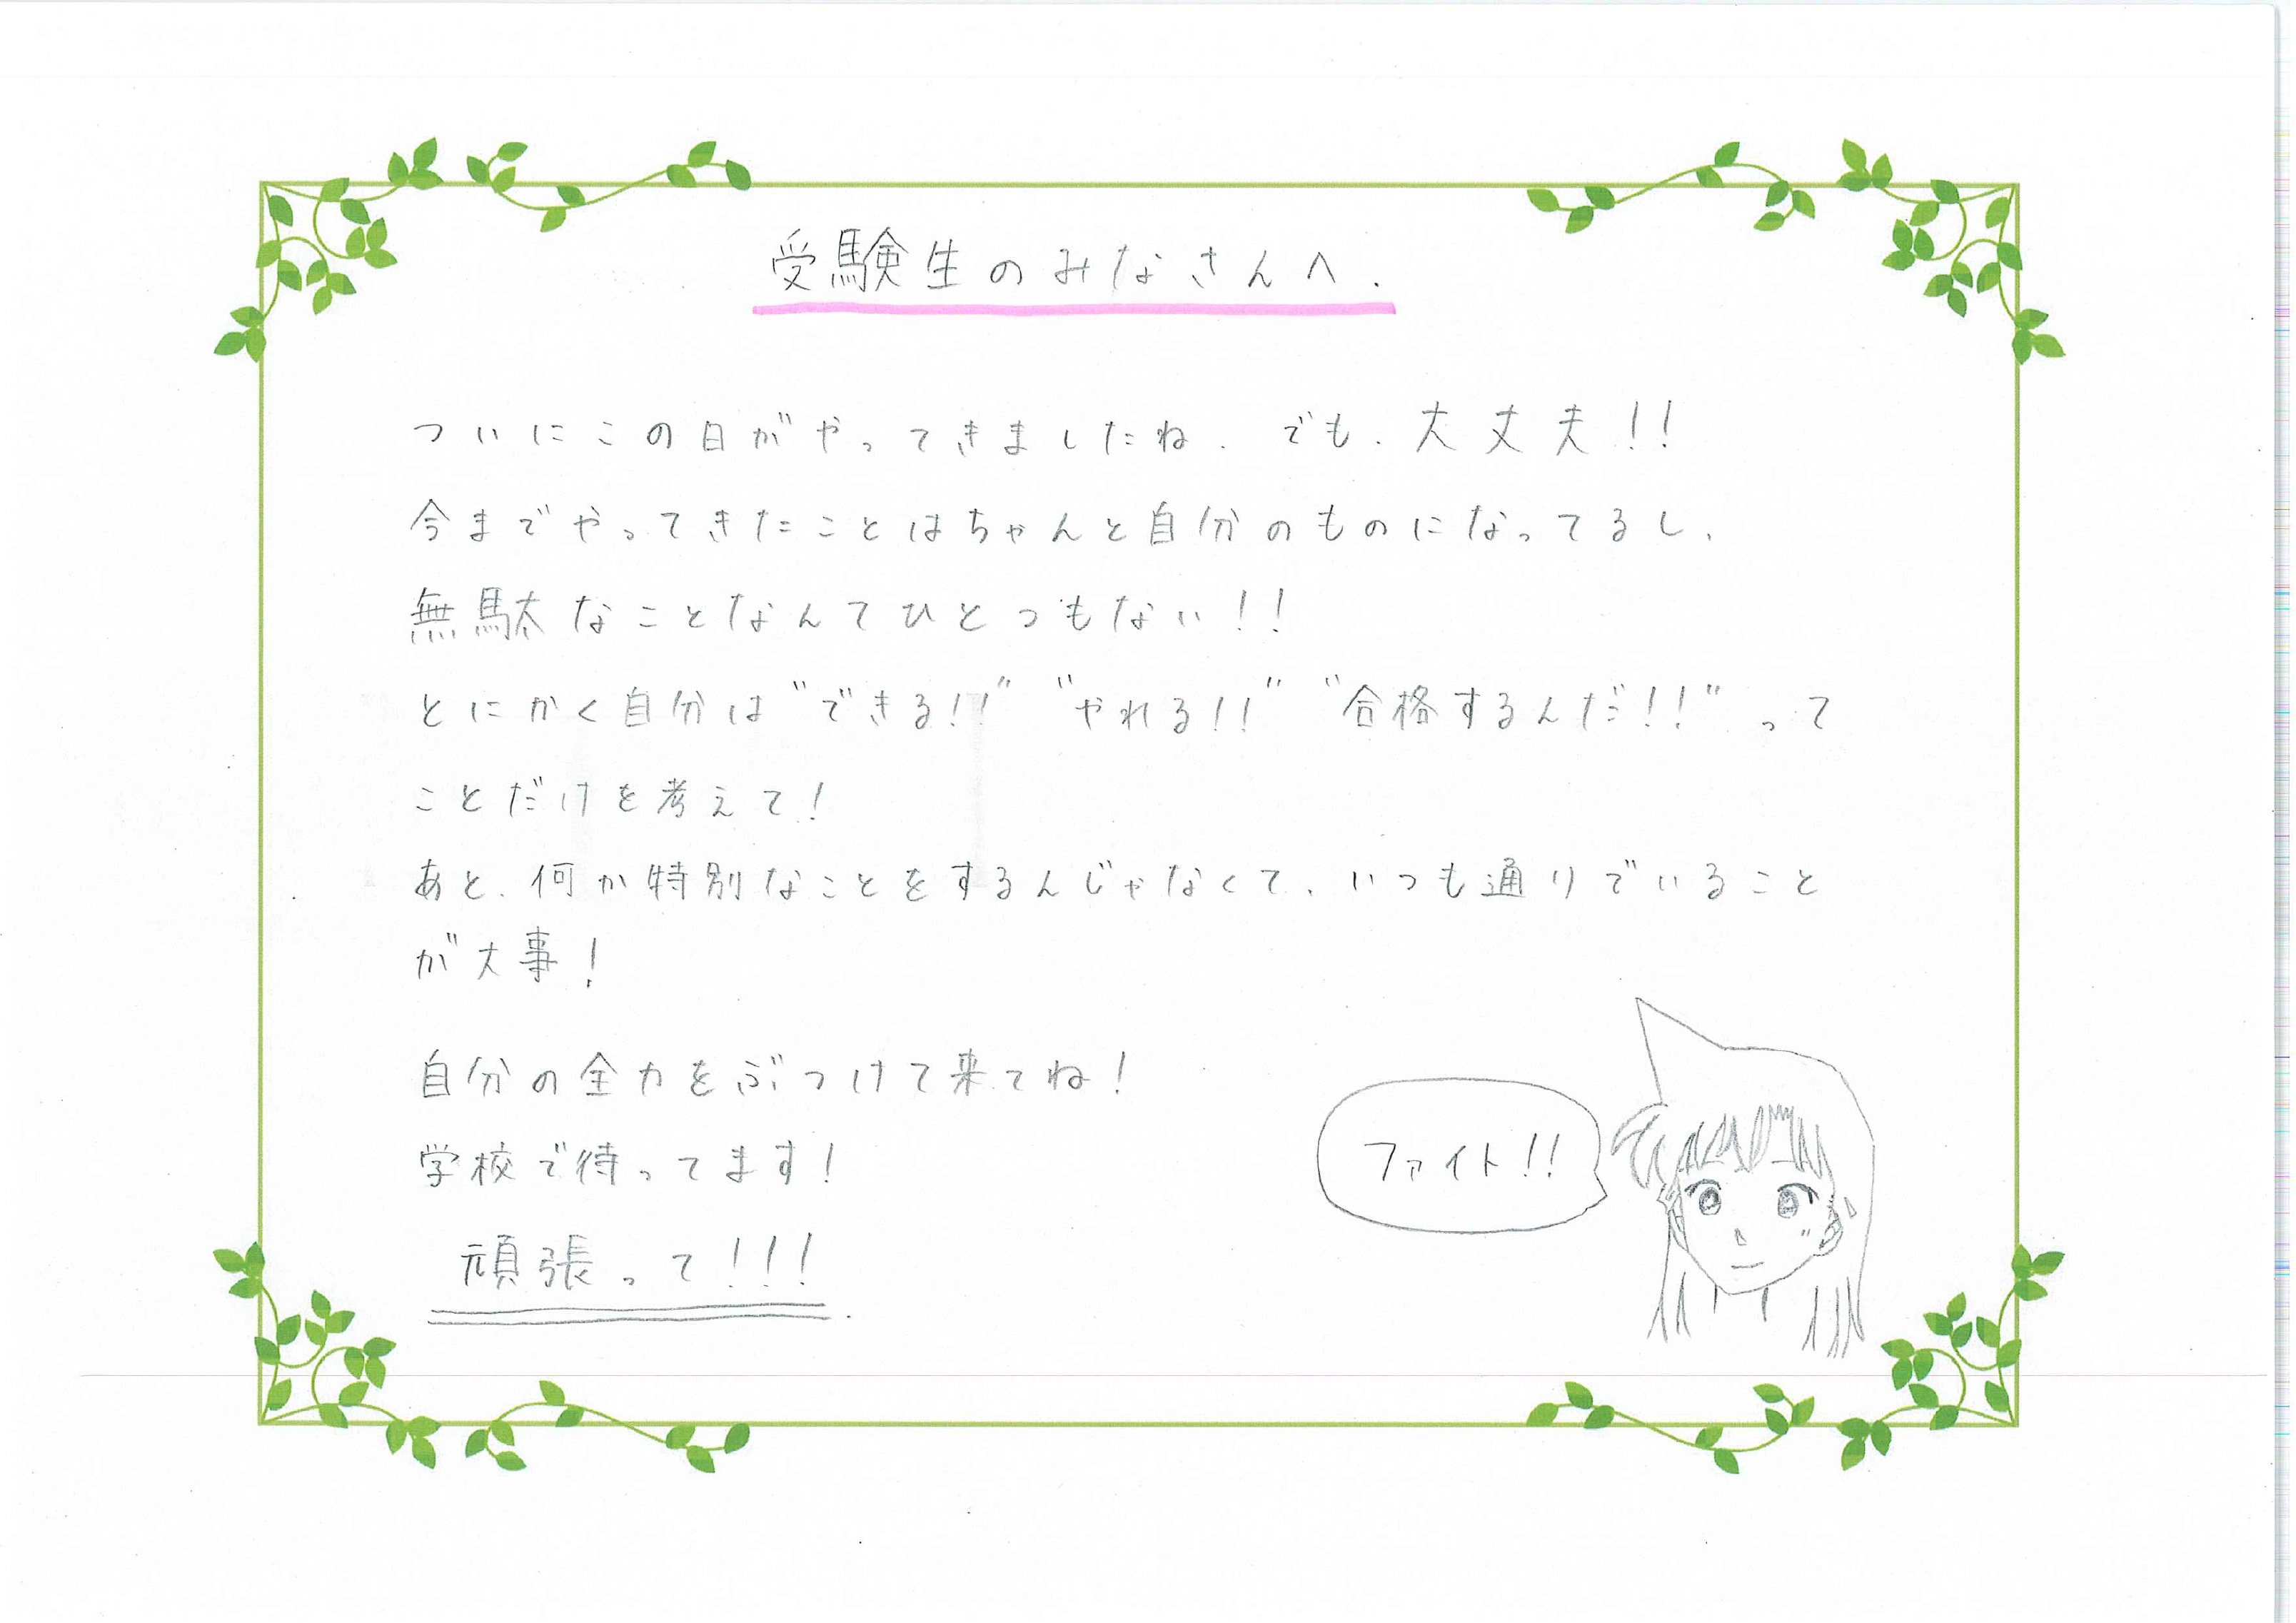 受験生のみなさんへ.
ついにこの日がやってきましたね. でも. 大丈夫!!
今までやってきたことはちゃんと自分のものになってるし、
無駄なことなんてひとつもない!!
とにかく自分は"できる!!" "やれる!!" "合格するんだ!!"って
ことだけを考えて!
あと、何か特別なことをするんじゃなくて、いつも通りでいること
が大事!
自分の全力をぶつけて来てね!
ファイト!!
学校で待ってます!
頑張って!!!.